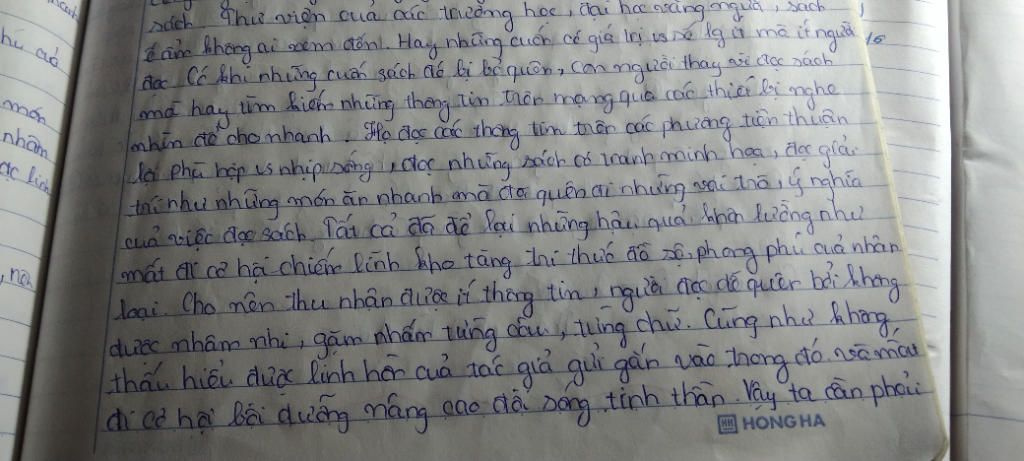 sách. Thư viện của các trường học, đại học vắng người, sách
ế ẩm không ai xem đến. Hay những cuốn có giá trị vs số lg ít mà ít người
đọc. Có khi những cuốn sách đó bị bỏ quên, con người thay vì đọc sách
mà hay tìm kiếm những thông tin trên mạng qua các thiết bị nghe
nhìn để cho nhanh. Họ đọc các thông tin trên các phương tiện thuận
là phù hợp vs nhịp sống, đọc những sách có tranh minh họa, đọc giải
trí như những món ăn nhanh mà đã quên đi những vai trò, ý nghĩa
của việc đọc sách. Tất cả đã để lại những hậu quả khôn lường như
mất đi cơ hội chiếm lĩnh kho tàng tri thức đồ sộ, phong phú của nhân
loại. Cho nên thu nhận được ít thông tin, người đọc dễ quên bởi không
được nhâm nhi, gặm nhấm từng câu, từng chữ. Cũng như không
thấu hiểu được linh hồn của tác giả gửi gắn vào trong đó và mất
đi cơ hội bồi dưỡng nâng cao đời sống tinh thần. Vậy ta cần phải
HH HONG HA
hi cả
món
nhầm